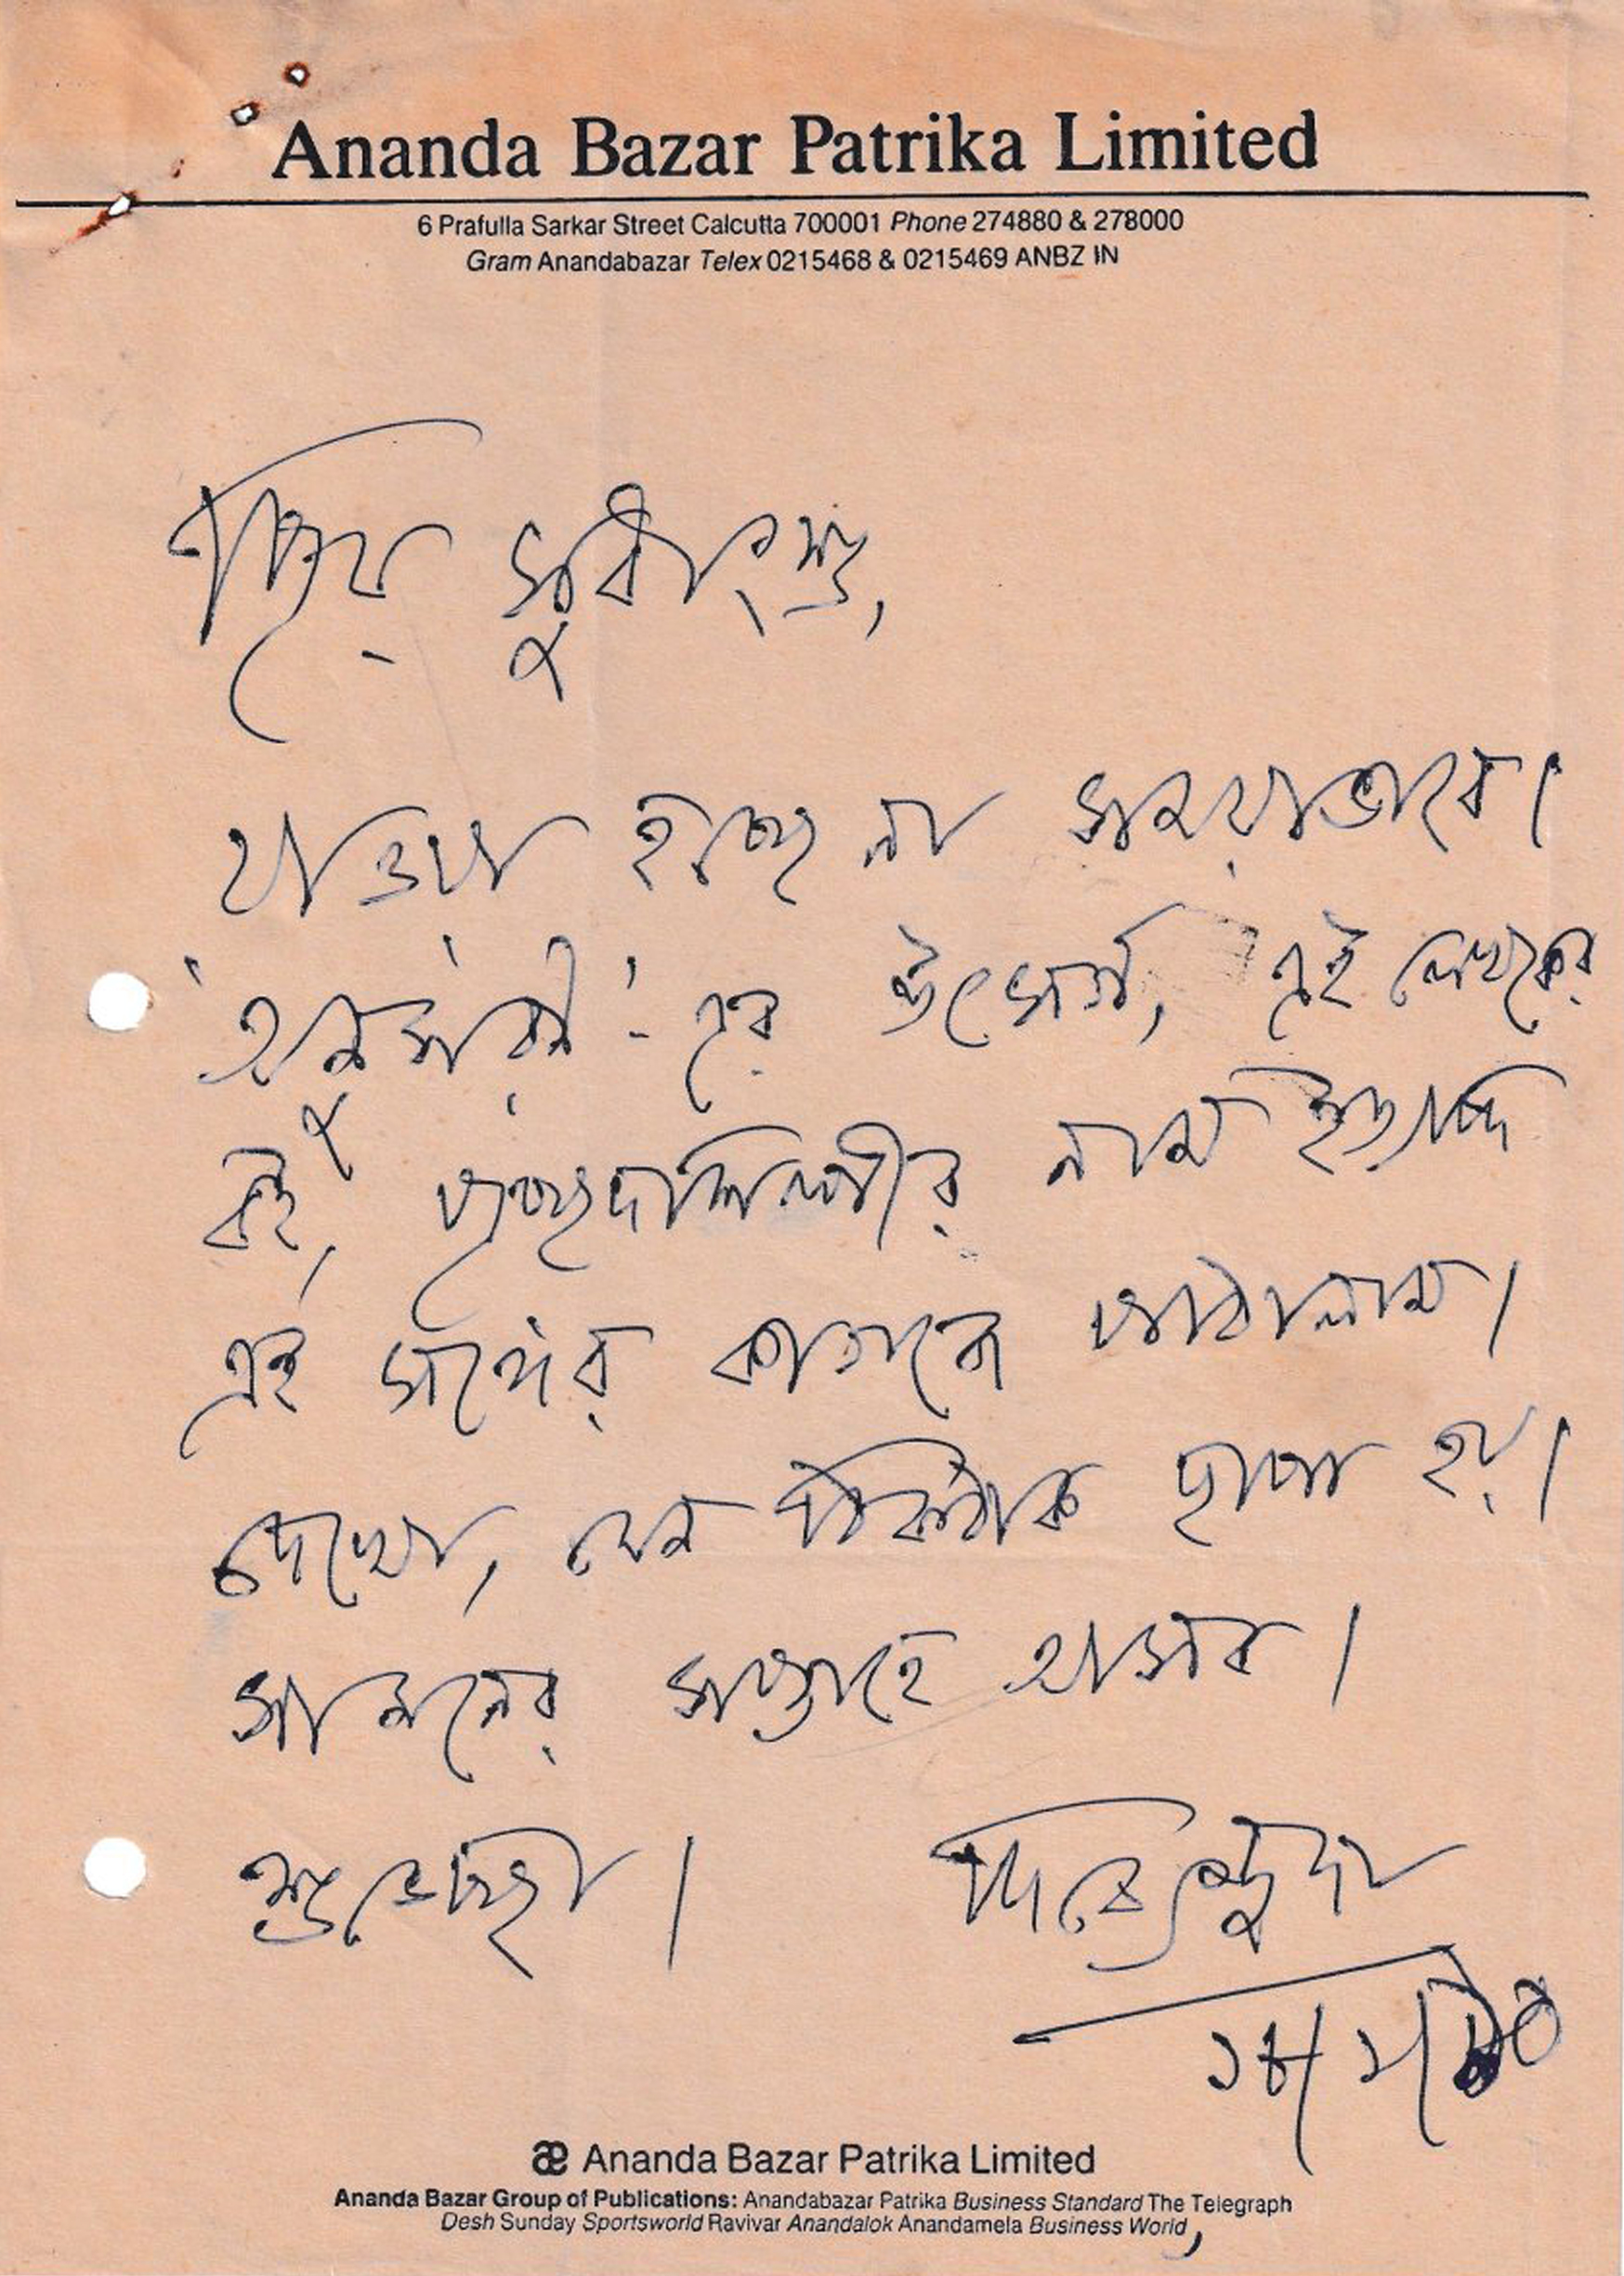 Ananda Bazar Patrika Limited
6 Prafulla Sarkar Street Calcutta 700001 Phone 274880 & 278000
Gram Anandabazar Telex 0215468 & 0215469 ANBZ IN
প্রিয় সুধীরাংশু,
যাওয়া হচ্ছে না সময়াভাবে।
'অনুসারী'-এর উৎসর্গ, এই লেখকের
বই, প্রচ্ছদশিল্পীর নাম ইত্যাদি
এই সঙ্গের কাগজে পাঠালাম।
দেখো, যেন ঠিকঠাক ছাপা হয়।
সামনের সপ্তাহে আসব।
শুভেচ্ছা। দিব্যেন্দুদা
১৮/১/
æ Ananda Bazar Patrika Limited
Ananda Bazar Group of Publications: Anandabazar Patrika Business Standard The Telegraph
Desh Sunday Sportsworld Ravivar Anandalok Anandamela Business World